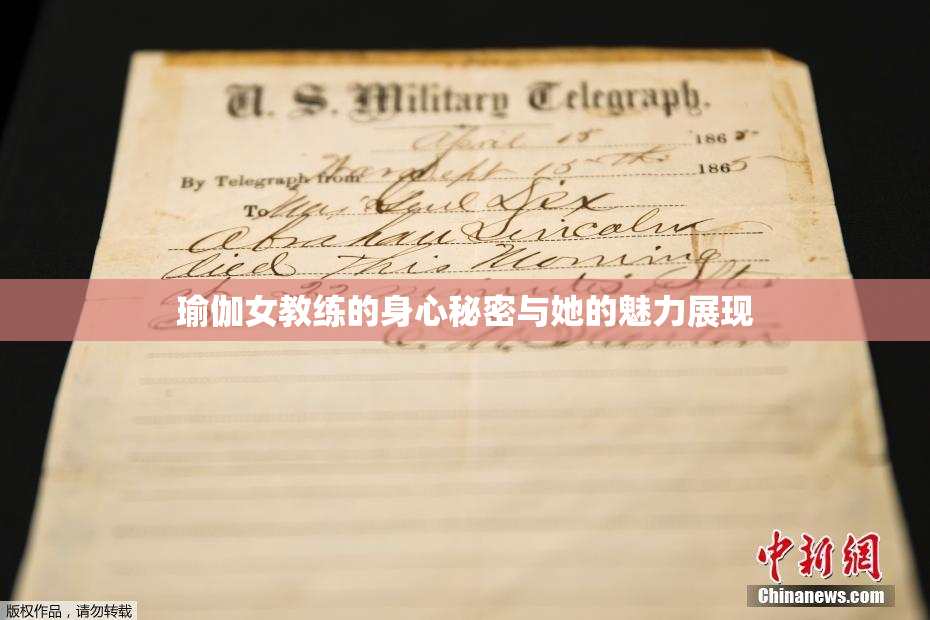 U. S. Military Telegraph.
April 15 1865-
By Telegraph from War Dept 15th 1865
To Maj Genl Dix
Abraham Lincoln
died This Morning
at 22 minutes after
瑜伽女教练的身心秘密与她的魅力展现
E. M. Stanton
中新網
Chinanews.com
版权作品，请勿转载